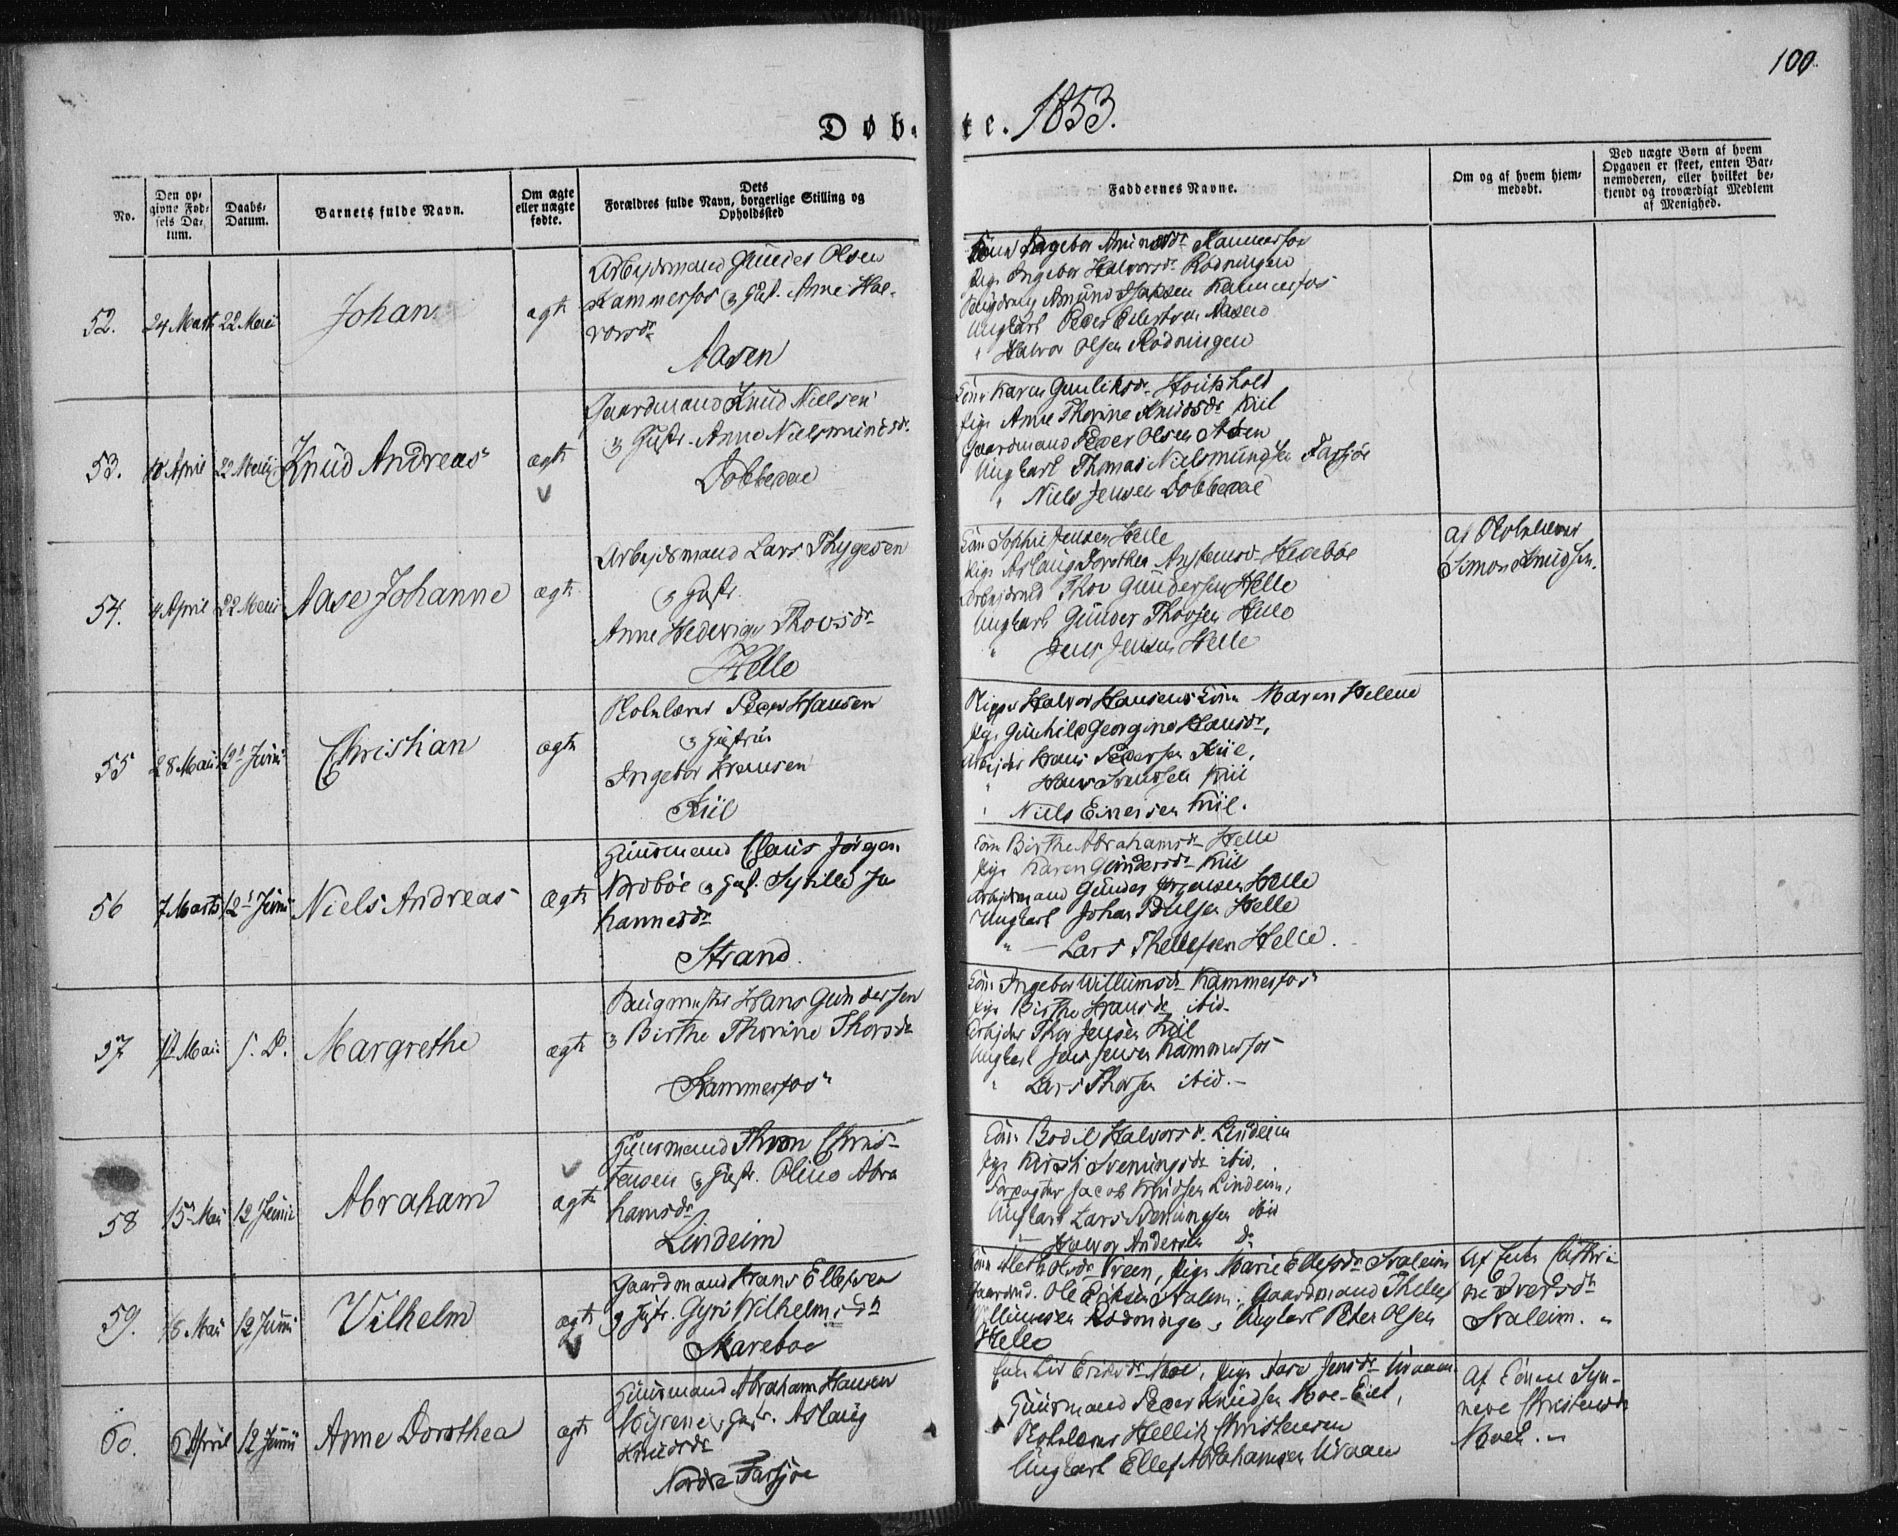 100
Døbte. 1853.
No.
Den opgivne Fødsels Datum.
Daabs-Datum.
Barnets fulde Navn.
Om ægte eller uægte fødte.
Dets Forældres fulde Navn, borgerlige Stilling og Opholdssted
Faddernes Navne.
Om og af hvem hjemmedøbt.
Ved uægte Børn af hvem Opgaven er skeet, enten Barnemoderen, eller hvilket bekjendt og troværdigt Medlem af Menighed.
52. 24 Marts 22 Maii Johan ægte
Arbejdsmand Gunder Olsen
Kammerfos & Hust. Anne Hal-
vorsdr
Aasen
Ingebor Kammerfos
Pige Ingebor Halvorsdr Rødningen
Amund Kammerfos
Ungkarl Aasen
" Halvor Olsen Rødningen
53. April 22 Maii Knud Andreas ægte
Gaardmand Knud Nielsen
& Hustr. Anne Nielsmundsdr
Dobbedal
Kone Karen Gunliksdr Houkhold
Pige Anne Thorine Knudsdr Kiil
Gaardmand Peder Olsen
Ungkarl Thomas Nielsmundsen Farsjøe
" Niels Jensen Dobbedal
54. 4 April 22 Maii Aase Johanne ægte
Arbejdsmand Lars Thygesen
& Hustr.
Anne Hedevige Thovsdr
Helle
Kone Sophie Jensen Helle
Pige Aslaug Dorothea Heebøe
Arbejdsmd Thov Gundersen Helle
Ungkarl Gunder Thovsen Helle
" Jens Jensen Helle
af Skolelærer
Simon Knudsen.
55 28 Maii 12 Junii Christian ægte
Skolelærer Peder Hansen
& Hustrue
Ingebor Hansen
Kiil
Halvor Hansens Kone Maren Helene
Pige Gunhild Georgine Hansdr,
Arbejder Hans Pedersen Kiil,
" Hans Kiil
" Niels Kiil.
56 7 Marts 12 Junii Niels Andreas ægte
Huusmand Claus Jørgen
& Hust. Sybille Jo
hannesdr
Strand.
Kone Birthe Abrahamsdr Helle
Pige Karen Gundersdr Kiil
Arbejdsmand Gunder Jørgensen Helle
Ungkarl Johan Helle
" — Lars Thellefsen Helle.
57 Maii s. D. Margrethe ægte
Hans Gundersen
& Birthe Thorine Thorsdr
Kammerfos
Kone Ingebor Willumsdr Kammerfos
Pige Birthe Hansdr ibid.
Arbejder Thor Jensen Kiil
Ungkarl Jens Jensen Kammerfos
" Lars Thorsen ibid.
58 15 Maii 12 Junii Abraham ægte
Huusmand Thron Chris-
tensen & Hustr. Oline Abra
hamsdr
Lindeim
Kone Bodil Halvorsdr Lindeim
Pige Kirsti Sveningsdr ibid.
Forpagter Jacob Knudsen Lindeim,
Ungkarl Lars Sveningsen ibid
— Halvor Andersen Do
59. Maii 12 Junii Vilhelm ægte
Gaardmand Hans Ellefsen
& Hustr. Gyri Wilhelmsdr
Skareboe
Kone Pige Marie Ellefsdr Svaleim
Gaardmd. Ole Gaardmand Thellef
Rødningen, Ungkarl Peter Olsen
Helle
Af Cathri-
ne Iversdr
Svaleim.
60. 6 April 12 Junii Anne Dorothea ægte
Huusmand Abraham Hansen
& Hustr. Aslaug
Knudsdr
Nordre Farsjøe
Kone Liv Pige Aase Jensdr Uraaen
Huusmand Peder Knudsen Moe-Eiet,
Skolelærer Hellik Christensen
Ungkarl Ellef Abrahamsen Uraaen
Af Konen Syn-
neve Christensdr